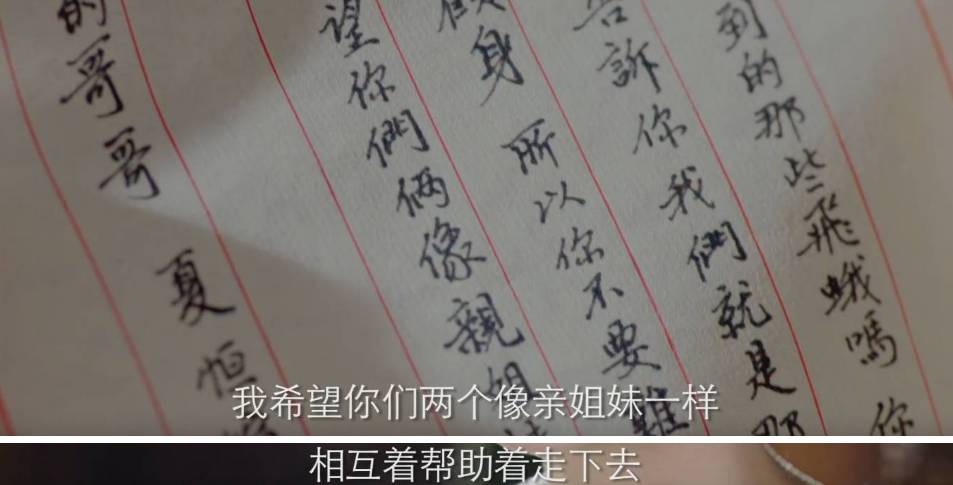 到的那些飛蛾嗎 你
告訴你我們就是那
假身 所以你不要難
望你們倆像親姐
的哥哥 夏恒
我希望你们两个像亲姐妹一样
相互着帮助着走下去